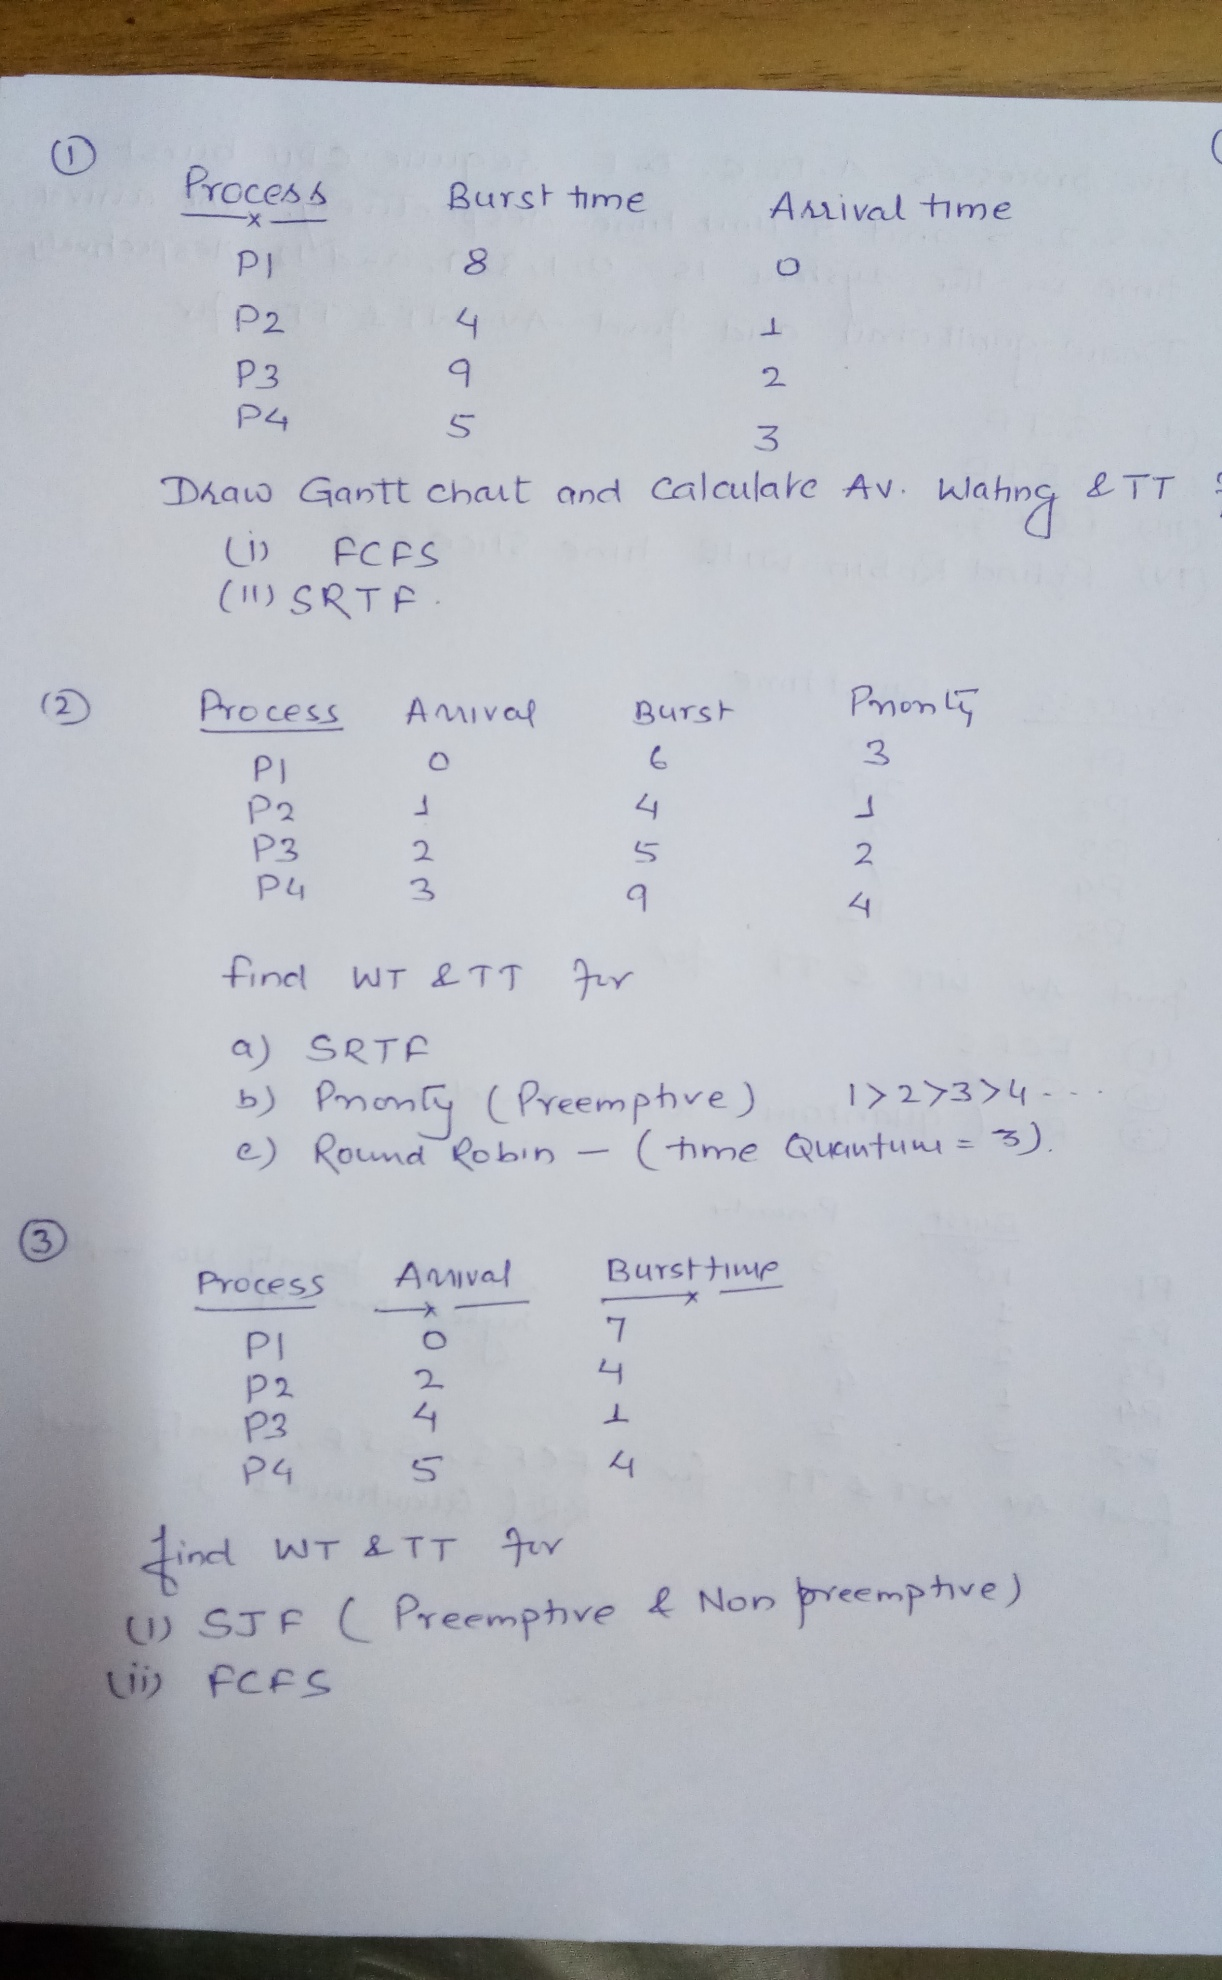 ①
Process Burst time Arrival time
P1 8 0
P2 4 1
P3 9 2
P4 5 3
Draw Gantt chart and calculate Av. Wating & TT
(i) FCFS
(ii) SRTF.
② Process Arrival Burst Priority
P1 0 6 3
P2 1 4 1
P3 2 5 2
P4 3 9 4
find WT & TT for
a) SRTF
b) Priority (Preemptive) 1>2>3>4---
c) Round Robin - (time Quantum = 3).
③
Process Arrival Burst time
P1 0 7
P2 2 4
P3 4 1
P4 5 4
find WT & TT for
(i) SJF ( Preemptive & Non preemptive)
(ii) FCFS